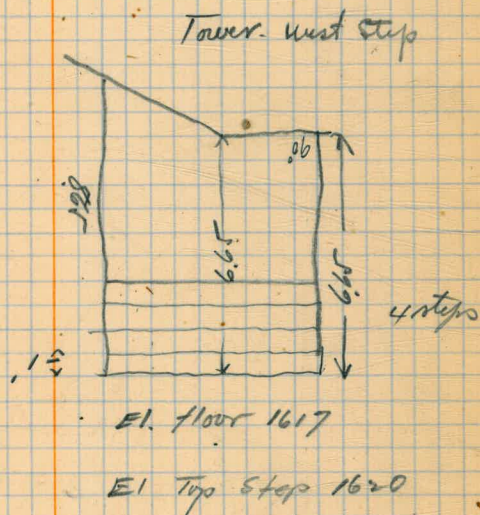 Tower. West Step
90°
6.65
6.65
4 steps
.1
El. floor 1617
El Top Step 1620